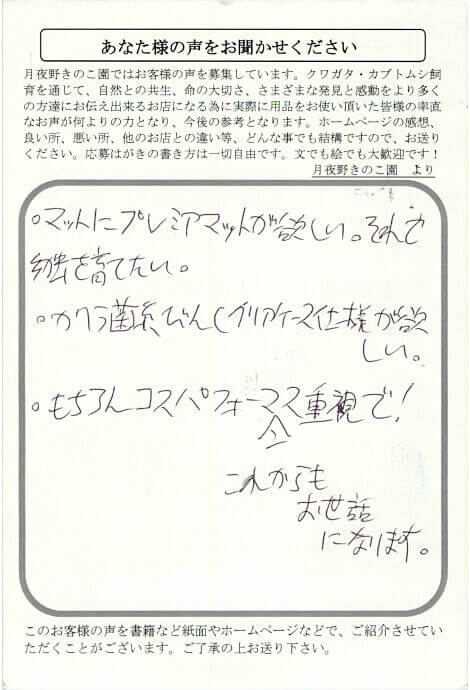 あなた様の声をお聞かせください
月夜野きのこ園ではお客様の声を募集しています。クワガタ・カブトムシ飼
育を通じて、自然との共生、命の大切さ、さまざまな発見と感動をより多く
の方達にお伝え出来るお店になる為に実際に用品をお使い頂いた皆様の率直
なお声が何よりの力となり、今後の参考となります。ホームページの感想、
良い所、悪い所、他のお店との違い等、どんな事でも結構ですので、お送り
ください。応募はがきの書き方は一切自由です。文でも絵でも大歓迎です！
月夜野きのこ園　より
○マットにプレミアマットが欲しい。それで
幼虫を育てたい。
○カワラ菌糸びん(クリアケース仕様が欲
しい。
○もちろんコスパフォーマス重視で！
ン
これからも
お世話
になります。
このお客様の声を書籍など紙面やホームページなどで、ご紹介させてい
ただくことがございます。ご了承の上お送り下さい。